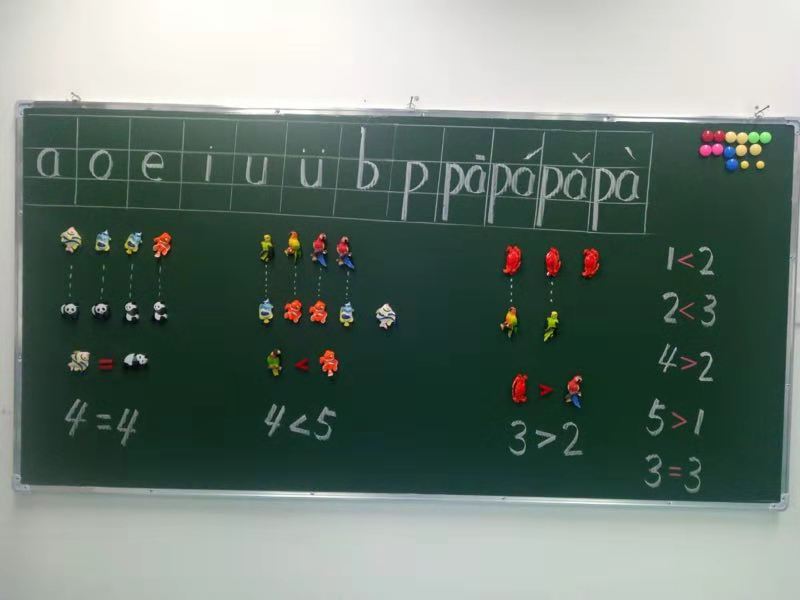 a o e i u ü b p pā pá pǎ pà
=
4=4
<
4<5
>
3>2
1<2
2<3
4>2
5>1
3=3